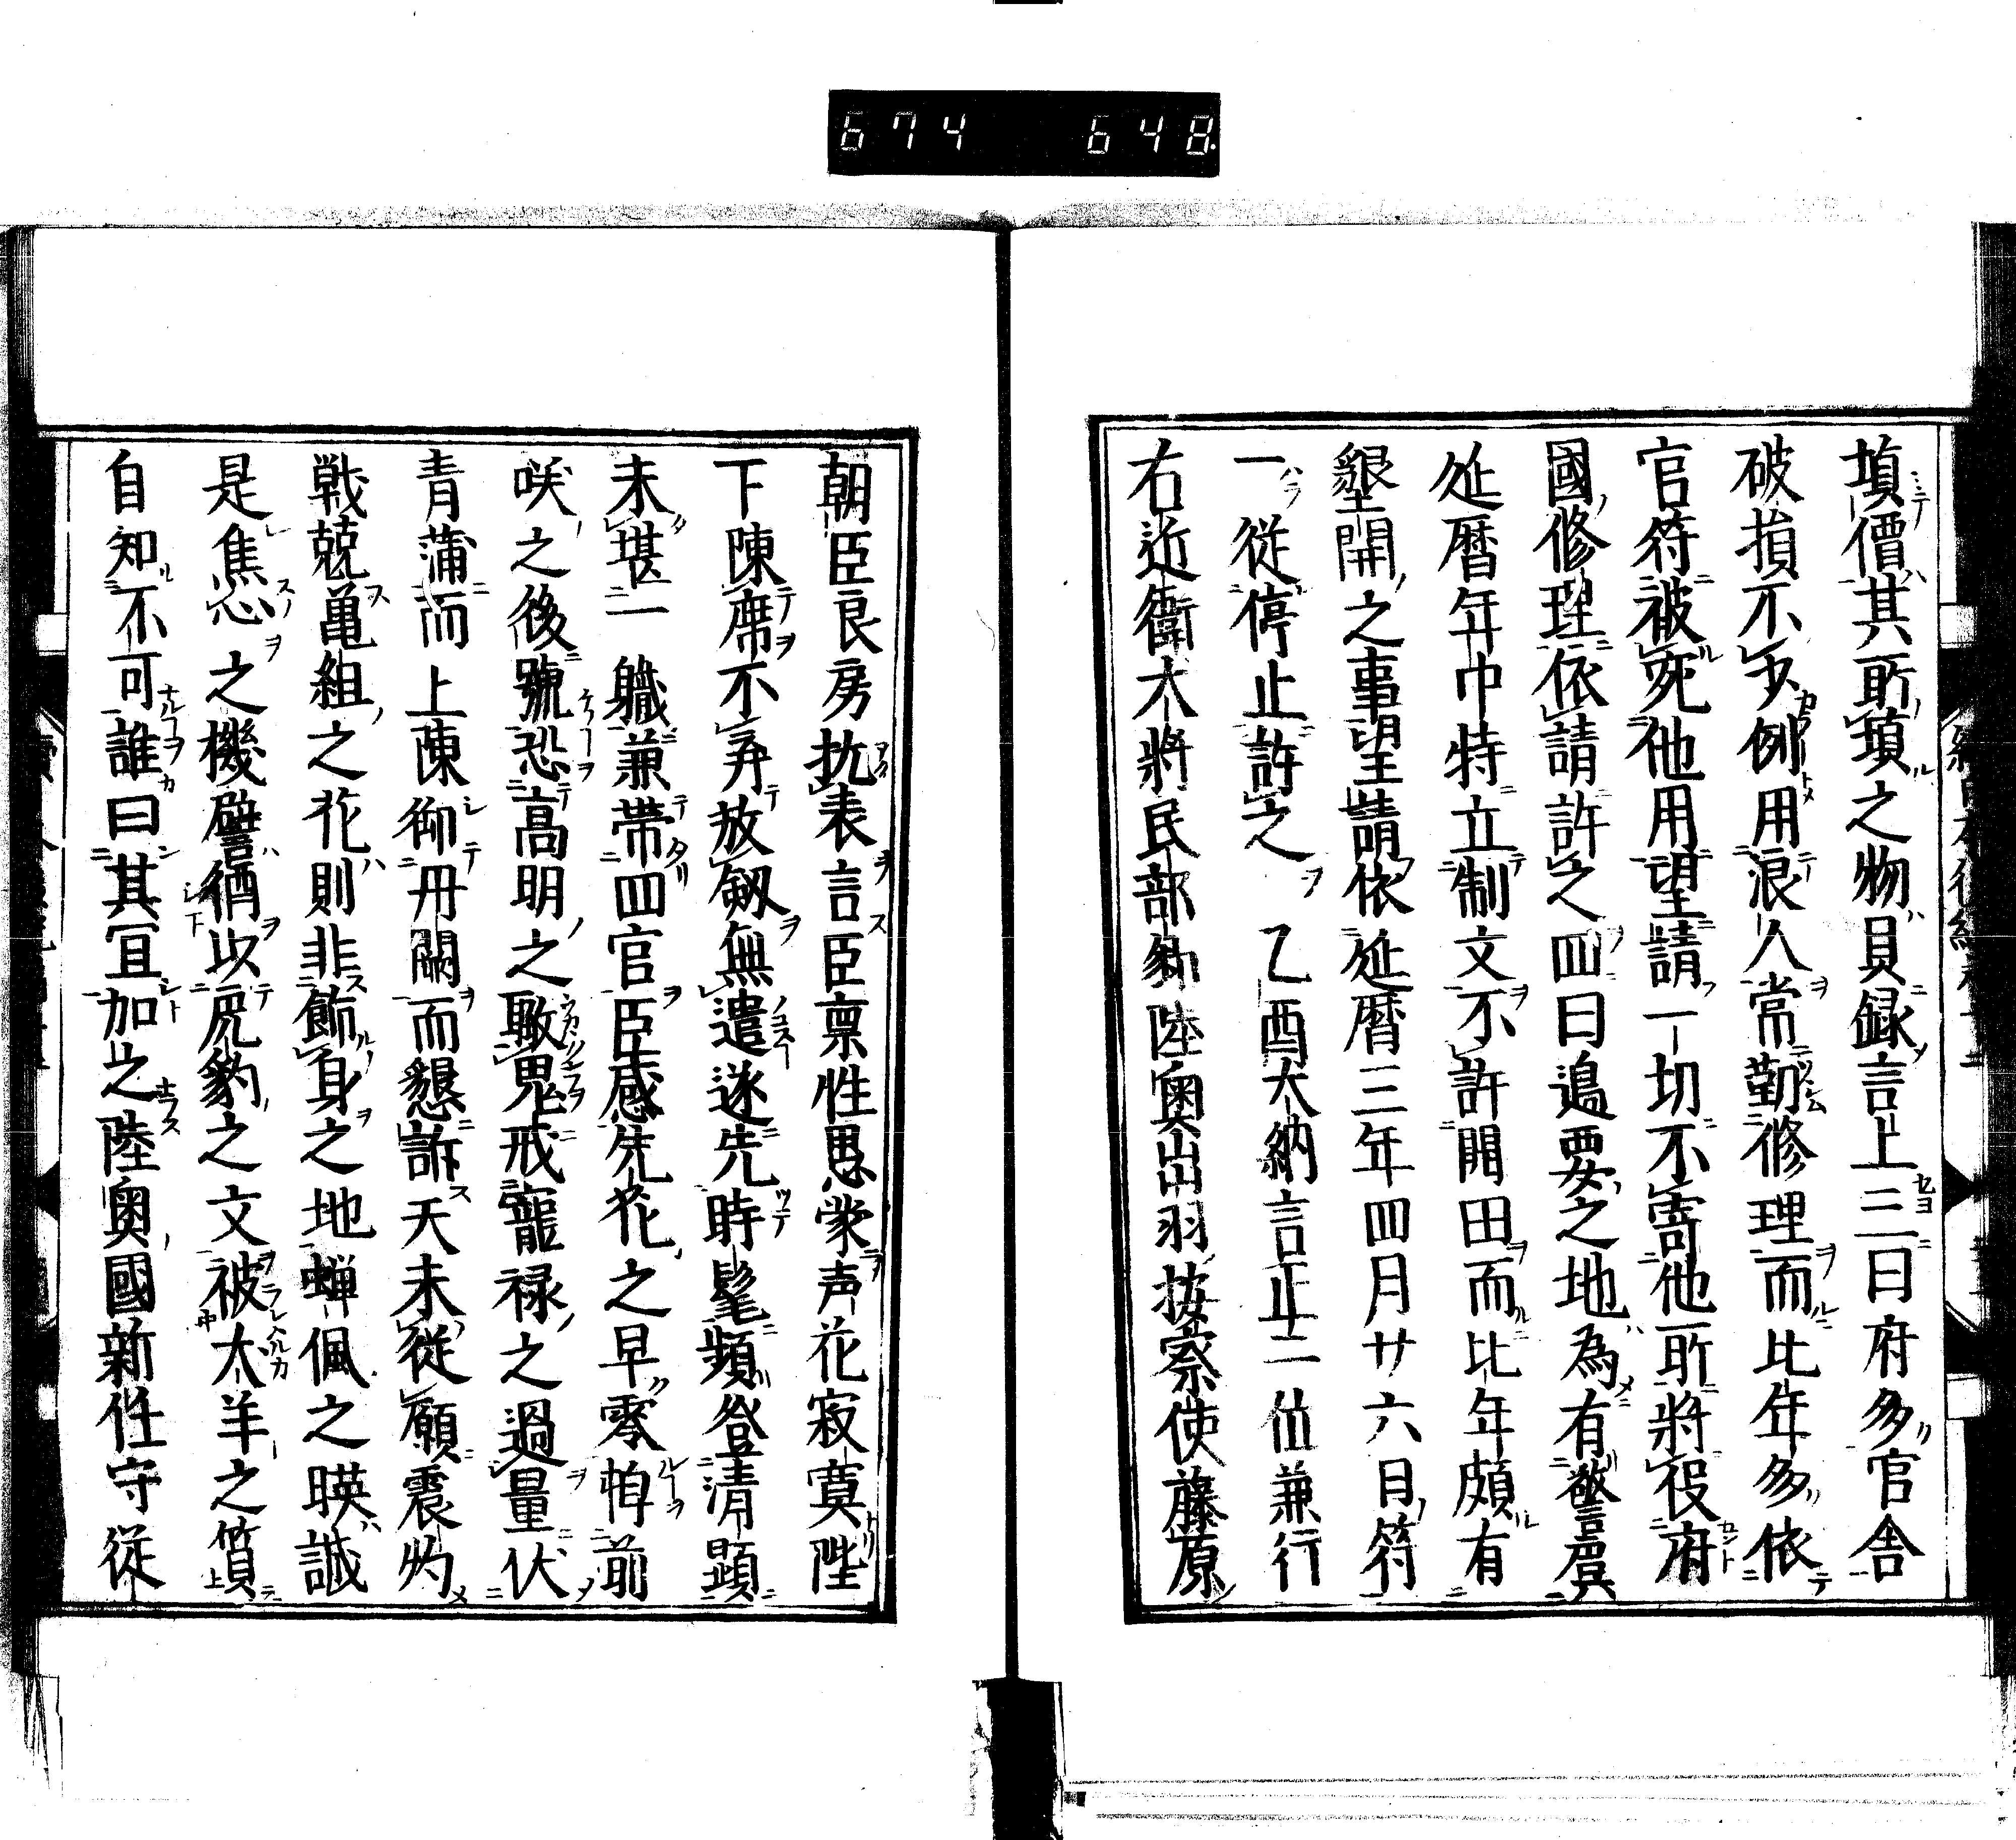 674 648
填價其所填之物具録言上三曰府多官舎
破損不少例用浪人常勤修理而比年多依
官符被宛他用望請一切不寄他所將役府
國修理依請許之四曰邊要之地為有警虞
延暦年中特立制文不許開田而比年頗有
墾開之事望請依延暦三年四月廿六日符
一從停止許之乙酉大納言正二位兼行
右近衛大將民部卿陸奥出羽按察使藤原
朝臣良房抗表言臣稟性愚蒙声花寂寞陛
下陳席不弃放劔無遣逐先時髦頻登清顕
未堪一職兼帯四官臣感先花之早零悼前
咲之後號恐高明之瞰鬼戒寵禄之過量伏
青蒲而上陳仰丹闕而懇訴天未從願震灼
戦兢亀組之花則非飾身之地蝉佩之暎誠
是焦心之機譬猶以虎豹之文被犬羊之質
自知不可誰曰其宜加之陸奥國新任守從